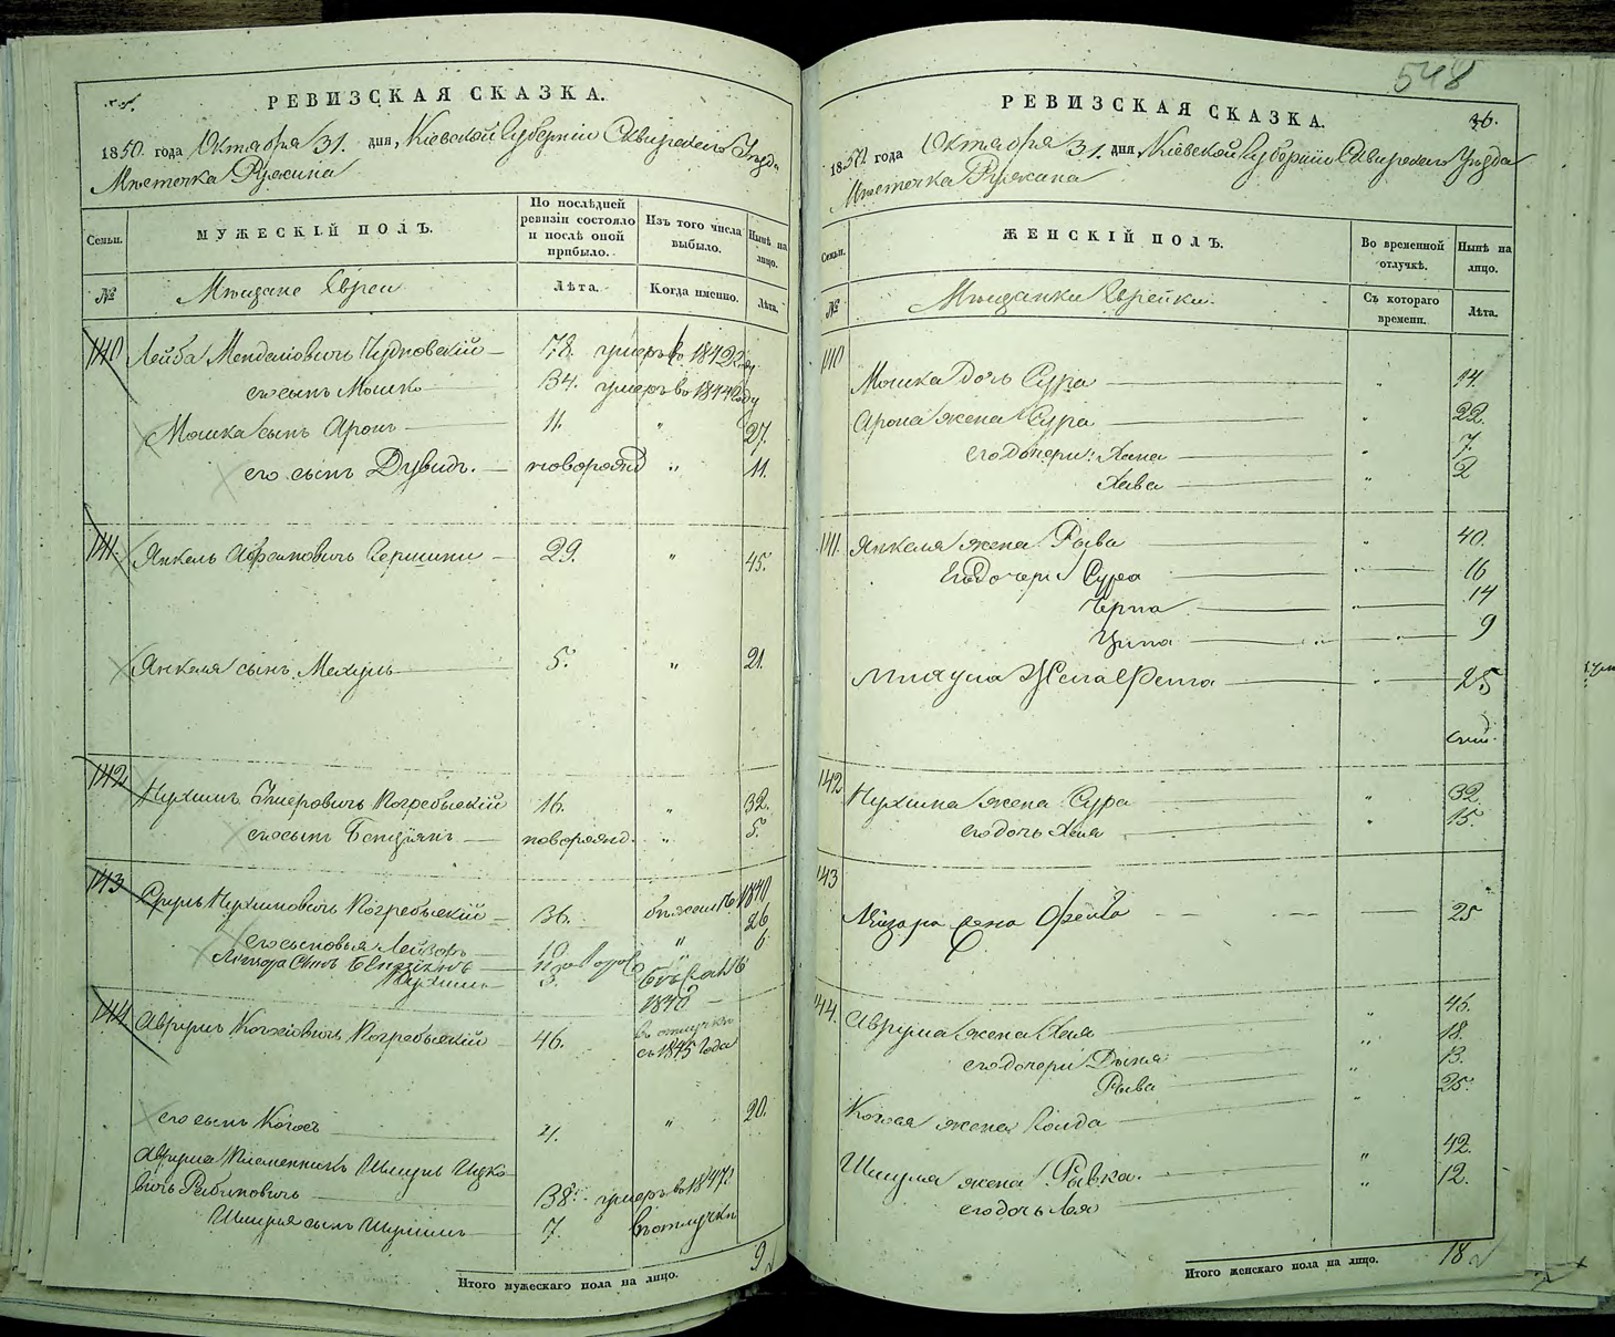 РЕВИЗСКАЯ СКАЗКА.
1850. года Октября 31. дня, Кіевской Губерніи Сквирскаго Уезда
Местечка Ружина
Семьи.
МУЖЕСКІЙ ПОЛЪ.
По послѣдней ревизіи состояло и послѣ оной прибыло.
Изъ того числа выбыло.
Нынѣ на лицо.
№
Мещане Евреи
Лѣта.
Когда именно.
Лѣта.
140 Лейба Менделіовичъ Чудновскій 78. умеръ въ 1842 году
его сынъ Мошко 34. умеръ въ 1844 году
Мошка сынъ Аронъ 11. " 27.
его сынъ Дувидъ. новорожд " 11.
141. Янкель Авраамовичъ 29. " 45.
Янкеля сынъ Мехуль 5. " 21.
142 Нухимъ Погребыскій 16. " 32.
его сынъ Бенціянъ новорожд. " 5.
143 Сруль Нухимовичъ Погребыскій 36. бежалъ 1840
его сыновья Лейзоръ 10 " 26
Лейзора Сынъ Бенціянъ новорож " 6
Нухимъ 3. Бежалъ
184
144 Аврумъ Когосовичъ Погребыскій 46. въ отлучке
съ 1845 года
его сынъ Когосъ 4. " 20.
Аврума племенникъ Шмуль Ицко
вичъ Рабиновичъ 38. умеръ въ 1847
Шмуля сынъ 7. въ отлучке
Итого мужескаго пола на лицо. 9
548
РЕВИЗСКАЯ СКАЗКА.
36.
185 года Октября 31. дня, Кіевской Губерніи Сквирскаго Уезда
Местечка Ружина
Семьи.
ЖЕНСКІЙ ПОЛЪ.
Во временной отлучкѣ.
Нынѣ на лицо.
№
Мещанки Еврейки.
Съ котораго времени.
Лѣта.
140
Мошка дочь Сура " 14.
Арона жена Сура " 22.
его дочери: Хана " 7.
Хава " 2
141. Янкеля жена Рыва " 40.
Его дочери Сура " 16
Черна " 14
Ципа " 9
жена Фейга " 25
142 Нухима жена Сура " 32.
его дочь Хая " 15.
143
Лейзора жена Фейга 25
144. Аврума жена Хая " 45.
его дочери Дыня " 18.
Рыва " 13.
Когоса жена Голда " 25.
Шмуля жена Рывка. " 42.
его дочь Лея " 12.
Итого женскаго пола на лицо. 18